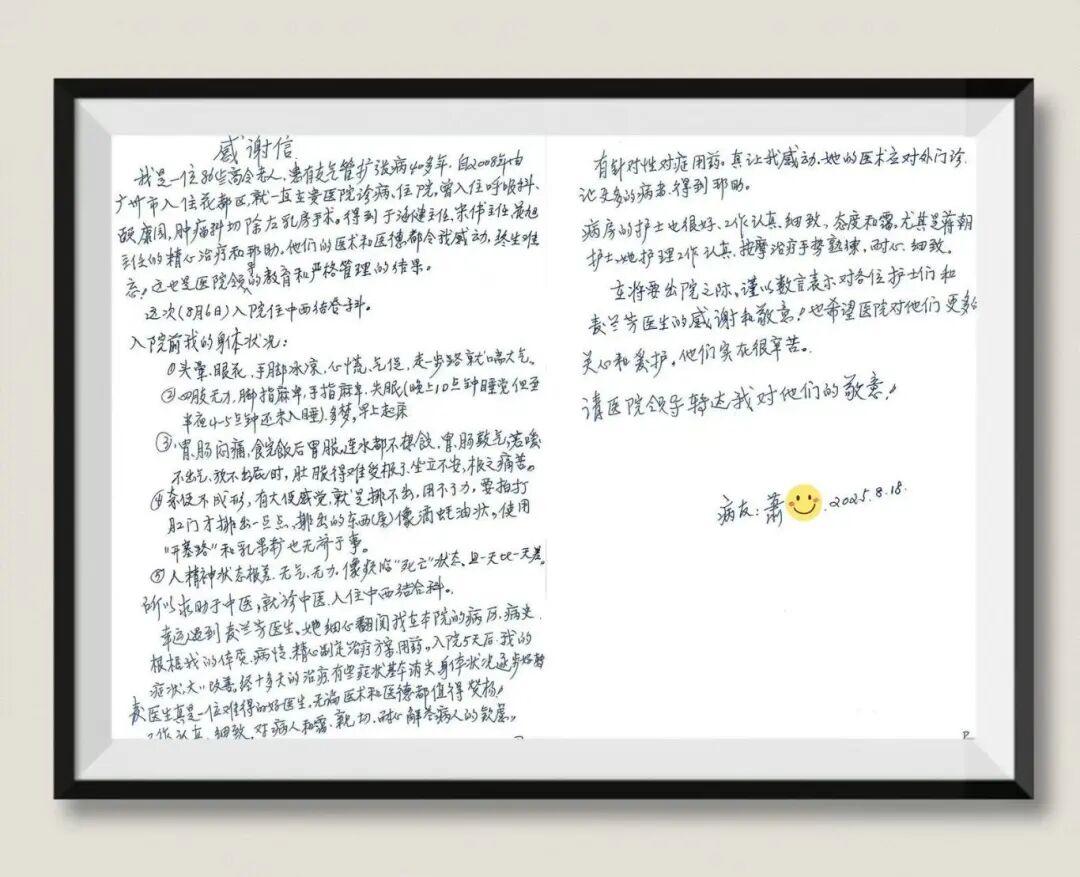 感谢信
我是一位86岁高令老人,患有支气管扩张病40多年,自2008年由
广州市入住花都区,就一直在贵医院诊病、住院,曾入住呼吸科、
颐康园,肿瘤科切除左乳房手术。得到于海健主任、宋伟主任、晁旭
主任的精心治疗和帮助,他们的医术和医德都令我感动,终生难
忘!这也是医院领导教育和严格管理的结果。
这次(8月6日)入院住中西结合科。
入院前我的身体状况:
①头晕、眼花、手脚冰凉、心慌、气促,走一步路就喘大气。
②四肢无力,脚指麻痺,手指麻痺,失眠(晚上10点钟睡觉但至
半夜4-5点钟还未入睡)多梦,早上起床
③胃、肠闷痛,食完飯后胃胀,连水都不想飲,胃、肠鼓气,若嗳
不出气,放不出屁时,肚胀得难受极了,坐立不安,极之痛苦。
④杂便不成形,有大便感觉,就是排不出,用不了力,要拍打
肛门才排出一旦点,排出的东西(屎)像滴蚝油状。使用
"开塞路"和乳果糖也无济于事。
⑤人精神状态极差,无气、无力,像频临"死亡"状态,且一天比一天差。
所以求助于中医,就诊中医,入住中西结合科。
幸运遇到麦兰芳医生、她细心翻阅我在本院的病历、病史,
根据我的体质、病情、精心制定治疗方案、用药。入院5天后,我的
症状,大大改善。经十多天的治疗,有些症状基本消失,身体状况逐步好转
麦医生真是一位难得的好医生,无论医术和医德都值得赞扬!
工作认真、细致,对病人和霭、亲切、耐心解答病人的
有针对性对症用药。真让我感动,她的医术应对外门诊
让更多的病者得到帮助。
病房的护士也很好、工作认真、细致,态度和霭,尤其是蒋朝
护士,她护理工作认真、按摩治疗手势熟练,耐心、细致。
在将要出院之际,谨以数言表示对各位护士们和
麦兰芳医生的感谢和敬意!也希望医院对他们更多
关心和爱护。他们实在很辛苦。
请医院领导转达我对他们的敬意!
病友:萧 2025.8.18.